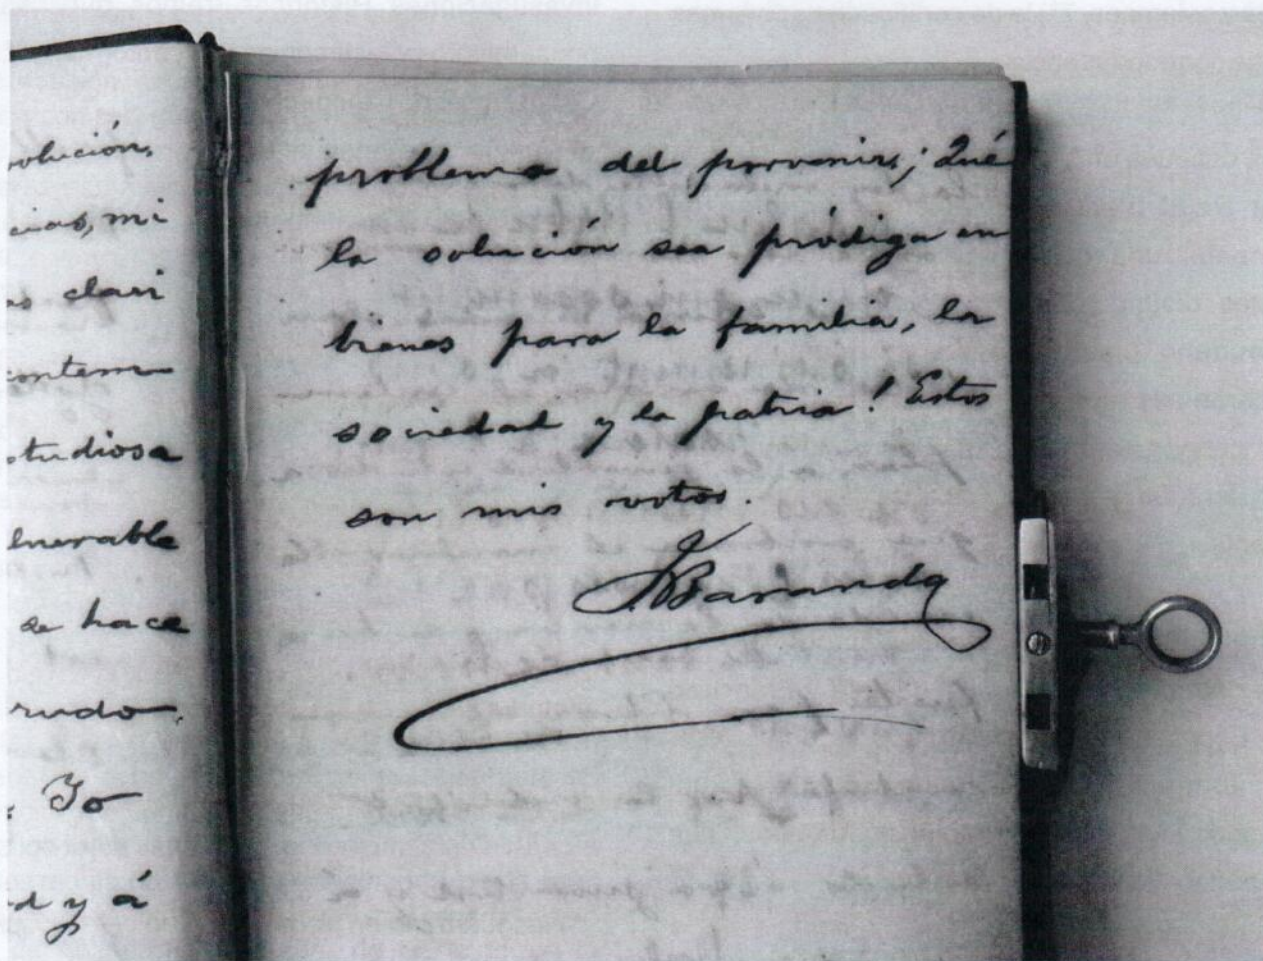 olución,
cias, mi
as clari
contem
studiosa
lnerable
se hace
rudo.
Yo
d y á
problema del porvenir, ¡Qué
la solución sea pródiga en
bienes para la familia, la
sociedad y la patria! Estos
son mis votos.
J. Baranda